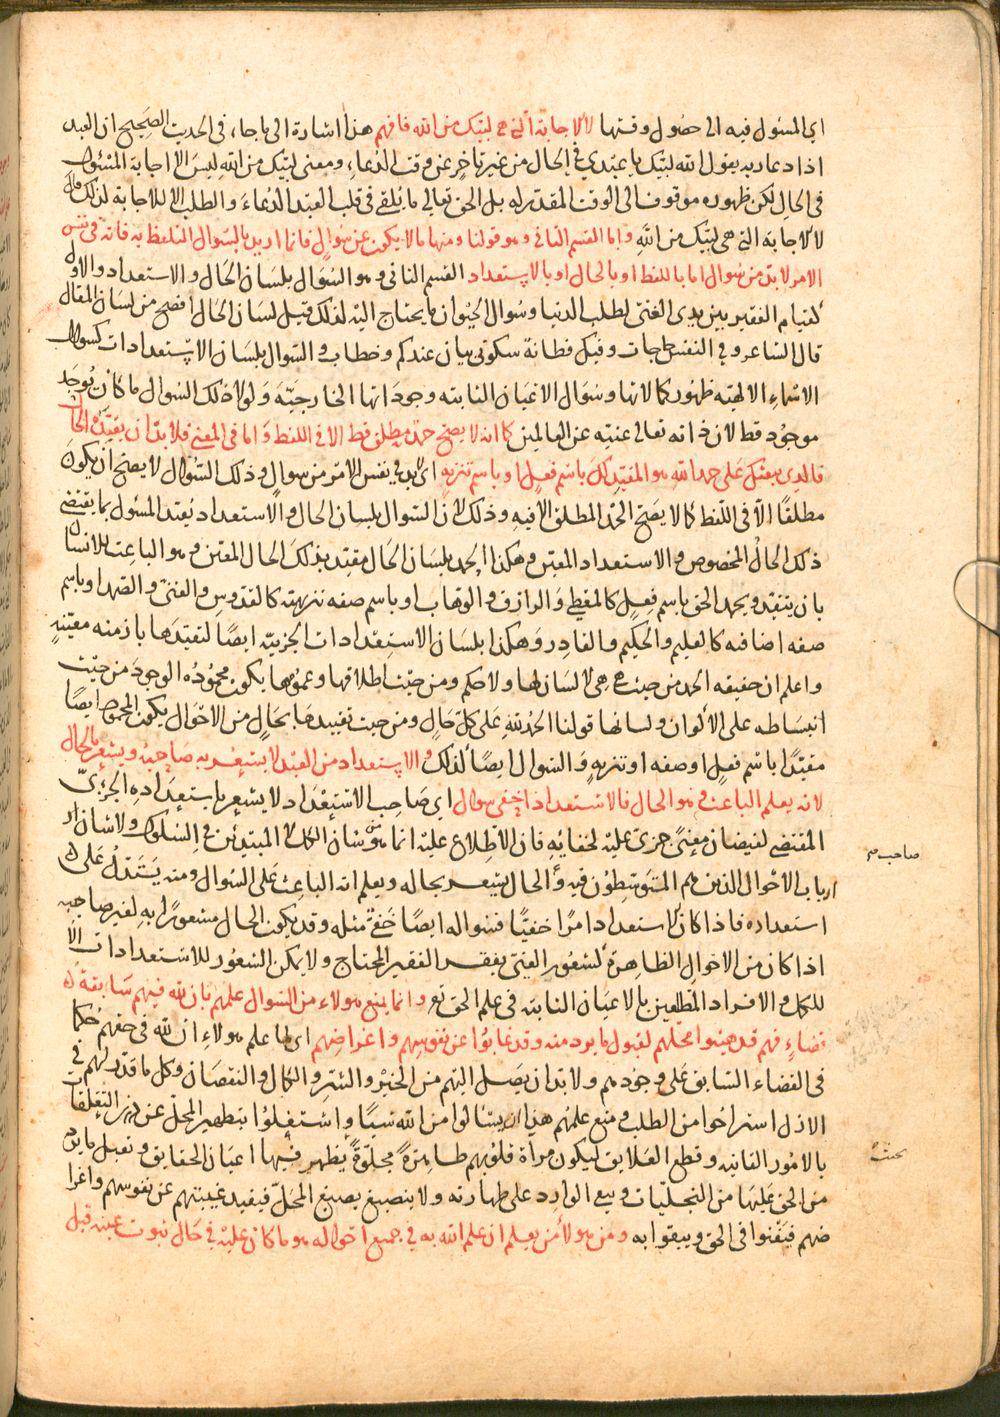 اي المسئول فيه الى حضول وقتها لا الاجابة التي هي لبيك من الله فافهم هذا اشارة الى ما جاء في الحديث الصحيح ان العبد
اذا دعا ربه يقول الله لبيك يا عبدي في الحال من غير تاخر عن وقت الدعاء ومعنى لبيك من الله ليس الا اجابة المسئول
في الحال لكن ظهوره موقوف الى الوقت المقدر له بل الحق تعالى ما يلقي في قلب العبد الدعاء والطلب الا للاجابة لذلك قال
لا الاجابة التي هي لبيك من الله واما القسم الثاني وهو قولنا ومنها ما لا يكون عن سوال فانما اريد بالسوال التلفظ به فانه في نفس
الامر لا بد من سوال اما باللفظ او بالحال او بالاستعداد القسم الثاني وهو السوال بلسان الحال والاستعداد والاول
كقيام الفقير بين يدي الغني لطلب الدنيا وسوال الحيوان ما يحتاج اليه لذلك قيل لسان الحال افصح من لسان المقال
قال الشاعر وفي النفس حاجات وفيك فطانة سكوتي بيان عندكم وخطاب والسوال بلسان الاستعدادات كسوال
الاسماء الالهية ظهور كمالاتها وسوال الاعيان الثابته وجوداتها الخارجية ولولا ذلك السوال ما كان يوجد
موجود قط لان ذاته تعالى غنيه عن العالمين كما انه لا يصح حمد مطلق قط الا في اللفظ واما في المعنى فلا بد ان يقيده الحال
فالذي يبعثك على حمد الله هو المقيد لك باسم فعل او باسم تنزيه اي لا بد في نفس الامر من سوال وذلك السوال لا يصح ان يكون
مطلقا الا في اللفظ كما لا يصح الحمد المطلق الا فيه وذلك لان السوال بلسان الحال والاستعداد يقيد المسئول بما يقتضي
ذلك الحال المخصوص والاستعداد المعين وهكذا الحمد بلسان الحال مقيد بذلك الحال المعين وهو الباعث للانسان
بان يتقيد ويحمد الحق باسم فعل كالمعطي والرازق والوهاب او باسم صفه تنزيهيه كالقدوس والغني والصمد او باسم
صفه اضافيه كالعليم والحكيم والقادر وهكذا بلسان الاستعدادات الجزئيه ايضا لتقيدها بازمنه معينه
واعلم ان حقيقه الحمد من حيث هي هي لا لسان لها ولا حكم ومن حيث اطلاقها وعمومها يكون محموده الوجود من حيث
انبساطه على الاكوان ولسانها قولنا الحمد لله على كل حال ومن حيث تقييدها بحال من الاحوال يكون المحمود ايضا
مقيدا باسم فعل او صفه او تنزيه والسوال ايضا كذلك والاستعداد من العبد لا يشعر به صاحبه ويشعر بالحال
لانه يعلم الباعث وهو الحال فالاستعداد اخفى سوال اي صاحب الاستعداد لا يشعر باستعداده الجزئي
المقتضي لفيضان معنى جزئ عليه لخفائه فان الاطلاع عليه انما هو من شان الكمل لا المبتدئين في السلوك ولا شان
ارباب الاحوال الذين هم المتوسطون فيه والحال يشعر بحاله ويعلم انه الباعث على السوال ومنه يستدل على
استعداده فاذا كان الاستعداد امرا خفيا فسواله ايضا خفي مثله وقد يكون الحال مشعورا به لغير صاحبه
اذا كان من الاحوال الظاهرة كشعور الغني بفقر الفقير المحتاج ولا يمكن الشعور للاستعدادات الا
للكمل والافراد المطلعين بالاعيان الثابته في علم الحق تع وانما يمنع هولاء من السوال علمهم بان لله فيهم سابقة
قضاء فهم قد هيئوا محلهم لقبول ما يرد منه وقد غابوا عن نفوسهم واغراضهم اي لما علم هولاء ان لله في حقهم حكما
في القضاء السابق على وجودهم ولا بد ان يصل اليهم من الخير والشر والكمال والنقصان وكل ما قدر لهم في
الازل استراحوا من الطلب ومنع علمهم هذا ان يسئالوا من الله شيئا واشتغلوا بتطهير المحل عن درن التعلقات
بالامور الفانيه وقطع العلايق ليكون مرآة قلوبهم طاهرة مجلوة يظهر فيها اعيان الحقايق وتقبل ما يرد
من الحق عليها من التجليات ويبقى الوارد على طهارته ولا ينصبغ بصبغ المحل فيفيد غيبتهم عن نفوسهم واغرا
ضهم فيفنوا في الحق ويبقوا به ومن هولاء من يعلم ان علم الله به في جميع احواله هو ما كان عليه في حال ثبوت عينه قبل
صاحب
بحث